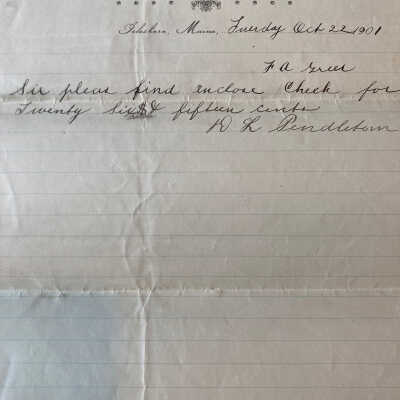 Islesboro, Maine, Tuesday Oct 22 1901
F A Greer
Sir pleas find enclose Check for
Twenty Six & fifteen cents
D L Pendleton